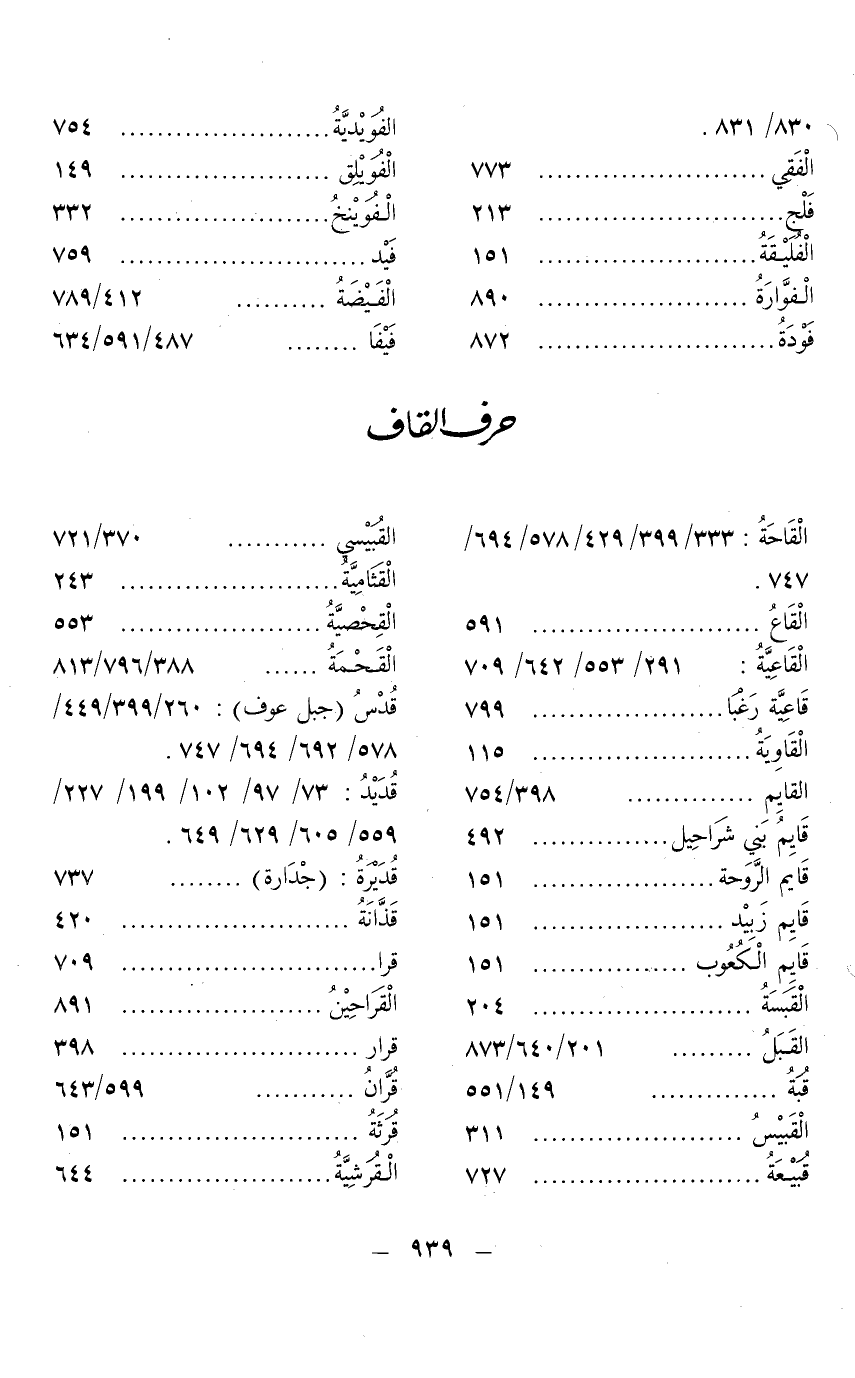 ٨٣٠/ ٨٣١ .
الْفَقِي ........................ ٧٧٣
فَلْج .......................... ٢١٣
الْفُلَيْقَةُ ....................... ١٥١
الْفوَّارَةُ ...................... ٨٩٠
فَوْدَةُ ......................... ٨٧٢
الفُوَيْدِيَّةُ ...................... ٧٥٤
الْفُوَيْلِق ...................... ١٤٩
الْفُوَيْنِخُ ...................... ٣٣٢
فَيْد .......................... ٧٥٩
الْفَيْضَةُ .......... ٧٨٩/٤١٢
فَيْفَا ........ ٦٣٤/٥٩١/٤٨٧
حرف القاف
الْقَاحَةُ : ٣٣٣/ ٣٩٩/ ٤٢٩/ ٥٧٨/ ٦٩٤/
٧٤٧ .
الْقَاعُ ........................ ٥٩١
الْقَاعِيَّةُ : ٢٩١/ ٥٥٣/ ٦٤٢/ ٧٠٩
قَاعِيَّة رَغْبَا .................... ٧٩٩
الْقَاوِيَةُ ....................... ١١٥
القايِم ............. ٧٥٤/٣٩٨
قَايِمُ بَنِي شَرَاحِيل ............... ٤٩٢
قَايِم الرَّوَحة .................... ١٥١
قَايِم زَبِيْد ..................... ١٥١
قَايِم الْكُعُوب ................. ١٥١
الْقَبَسَةُ ....................... ٢٠٤
القَبَلُ ......... ٨٧٣/٦٤٠/٢٠١
قُبَةُ .............. ٥٥١/١٤٩
الْقَبِيْسُ ...................... ٣١١
قُبَيْعَةُ ........................ ٧٢٧
القُبَيْسي ........... ٧٢١/٣٧٠
الْقَثَامِيَّةُ ....................... ٢٤٣
الْقِحْصِيَّةُ ..................... ٥٥٣
الْقَحْمَةُ ...... ٨١٣/٧٩٦/٣٨٨
قُدْسُ (جبل عوف) : ٢٦٠/٣٩٩/٤٤٩/
٥٧٨/ ٦٩٢/ ٦٩٤/ ٧٤٧ .
قُدَيْدُ : ٧٣/ ٩٧/ ١٠٢/ ١٩٩/ ٢٢٧/
٥٥٩/ ٦٠٥/ ٦٢٩/ ٦٤٩ .
قُدَيْرَةُ : (جْدَارة) ........ ٧٣٧
قَذَّانَةُ ........................ ٤٢٠
قرا ........................... ٧٠٩
الْقَرَاحِيْنُ ..................... ٨٩١
قرار ......................... ٣٩٨
قُرَّانُ ........... ٦٤٣/٥٩٩
قُرَثَةُ ......................... ١٥١
الْقُرَشِيَّةُ ...................... ٦٤٤
– ٩٣٩ –